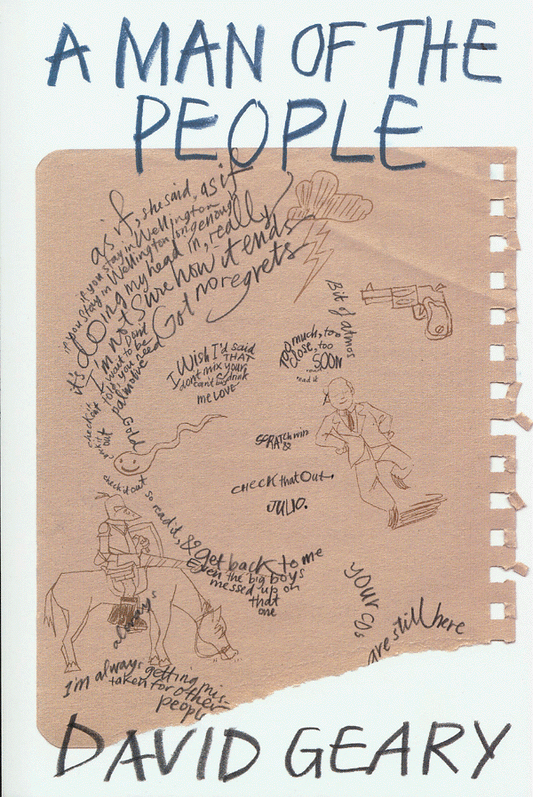 A MAN OF THE
PEOPLE
as if, she said, as if
if you stay in Wellington
if you stay in Wellington long enough
it's doing my head in, really
I'm not sure how it ends
Got no regrets
I don't
want to be
Gold
check it out
check it out
I wish I'd said
THAT
dont mix your
and drink
me LOVE
Bit of atmos
too much, too
close, too
SOON
read it
SCRATCH win
&
check that out,
JULIO.
so read it, & get back to me
Even the big boys
messed up on
that
one
always
I'm always getting mis-
taken for other
people
your gs
are still here
DAVID GEARY